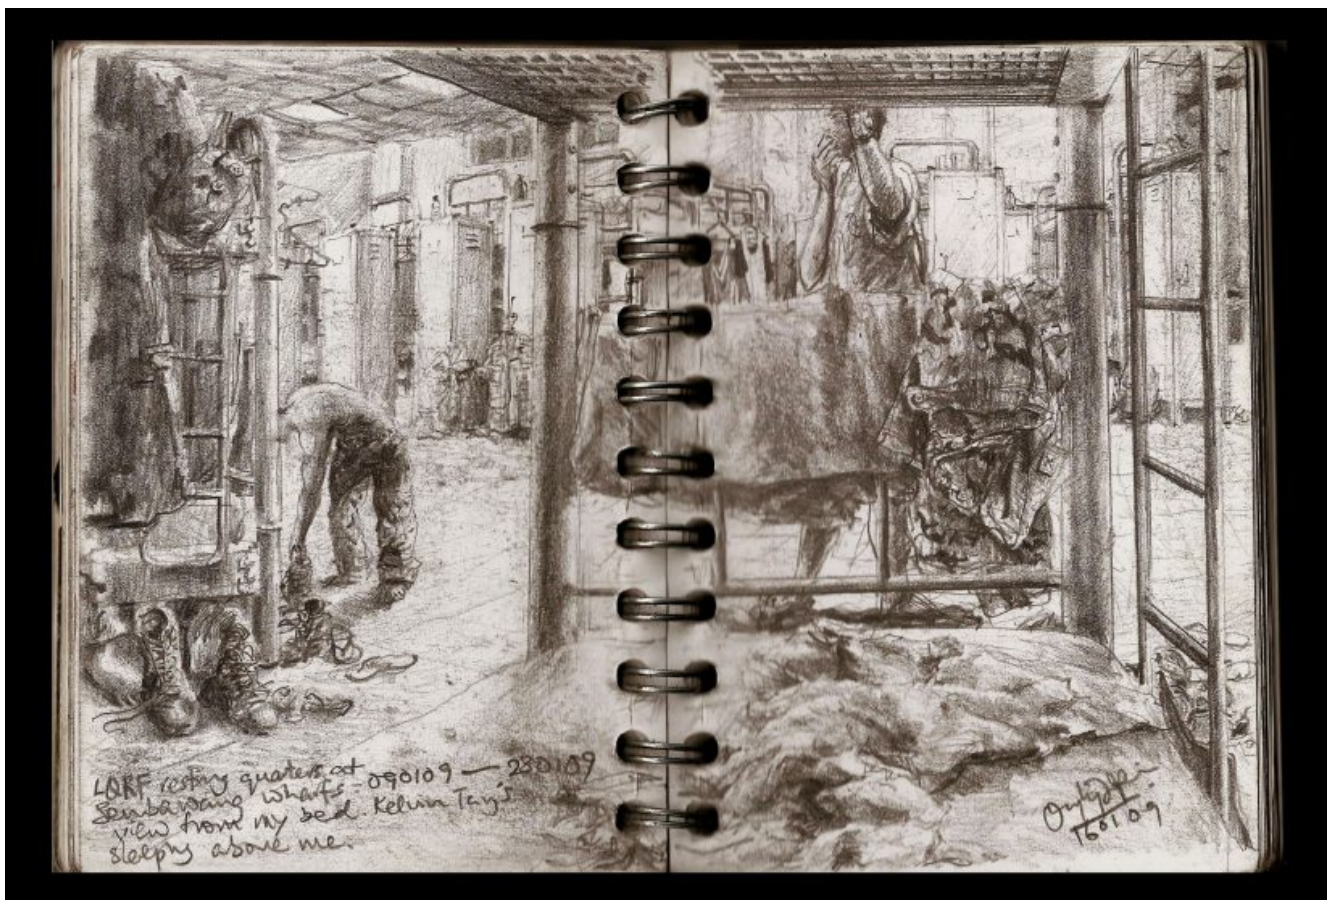 LQRF resting quarters at
Sembawang wharfs - 090109 — 230109
view from my bed. Kelvin Tay's
sleeping above me.
160109